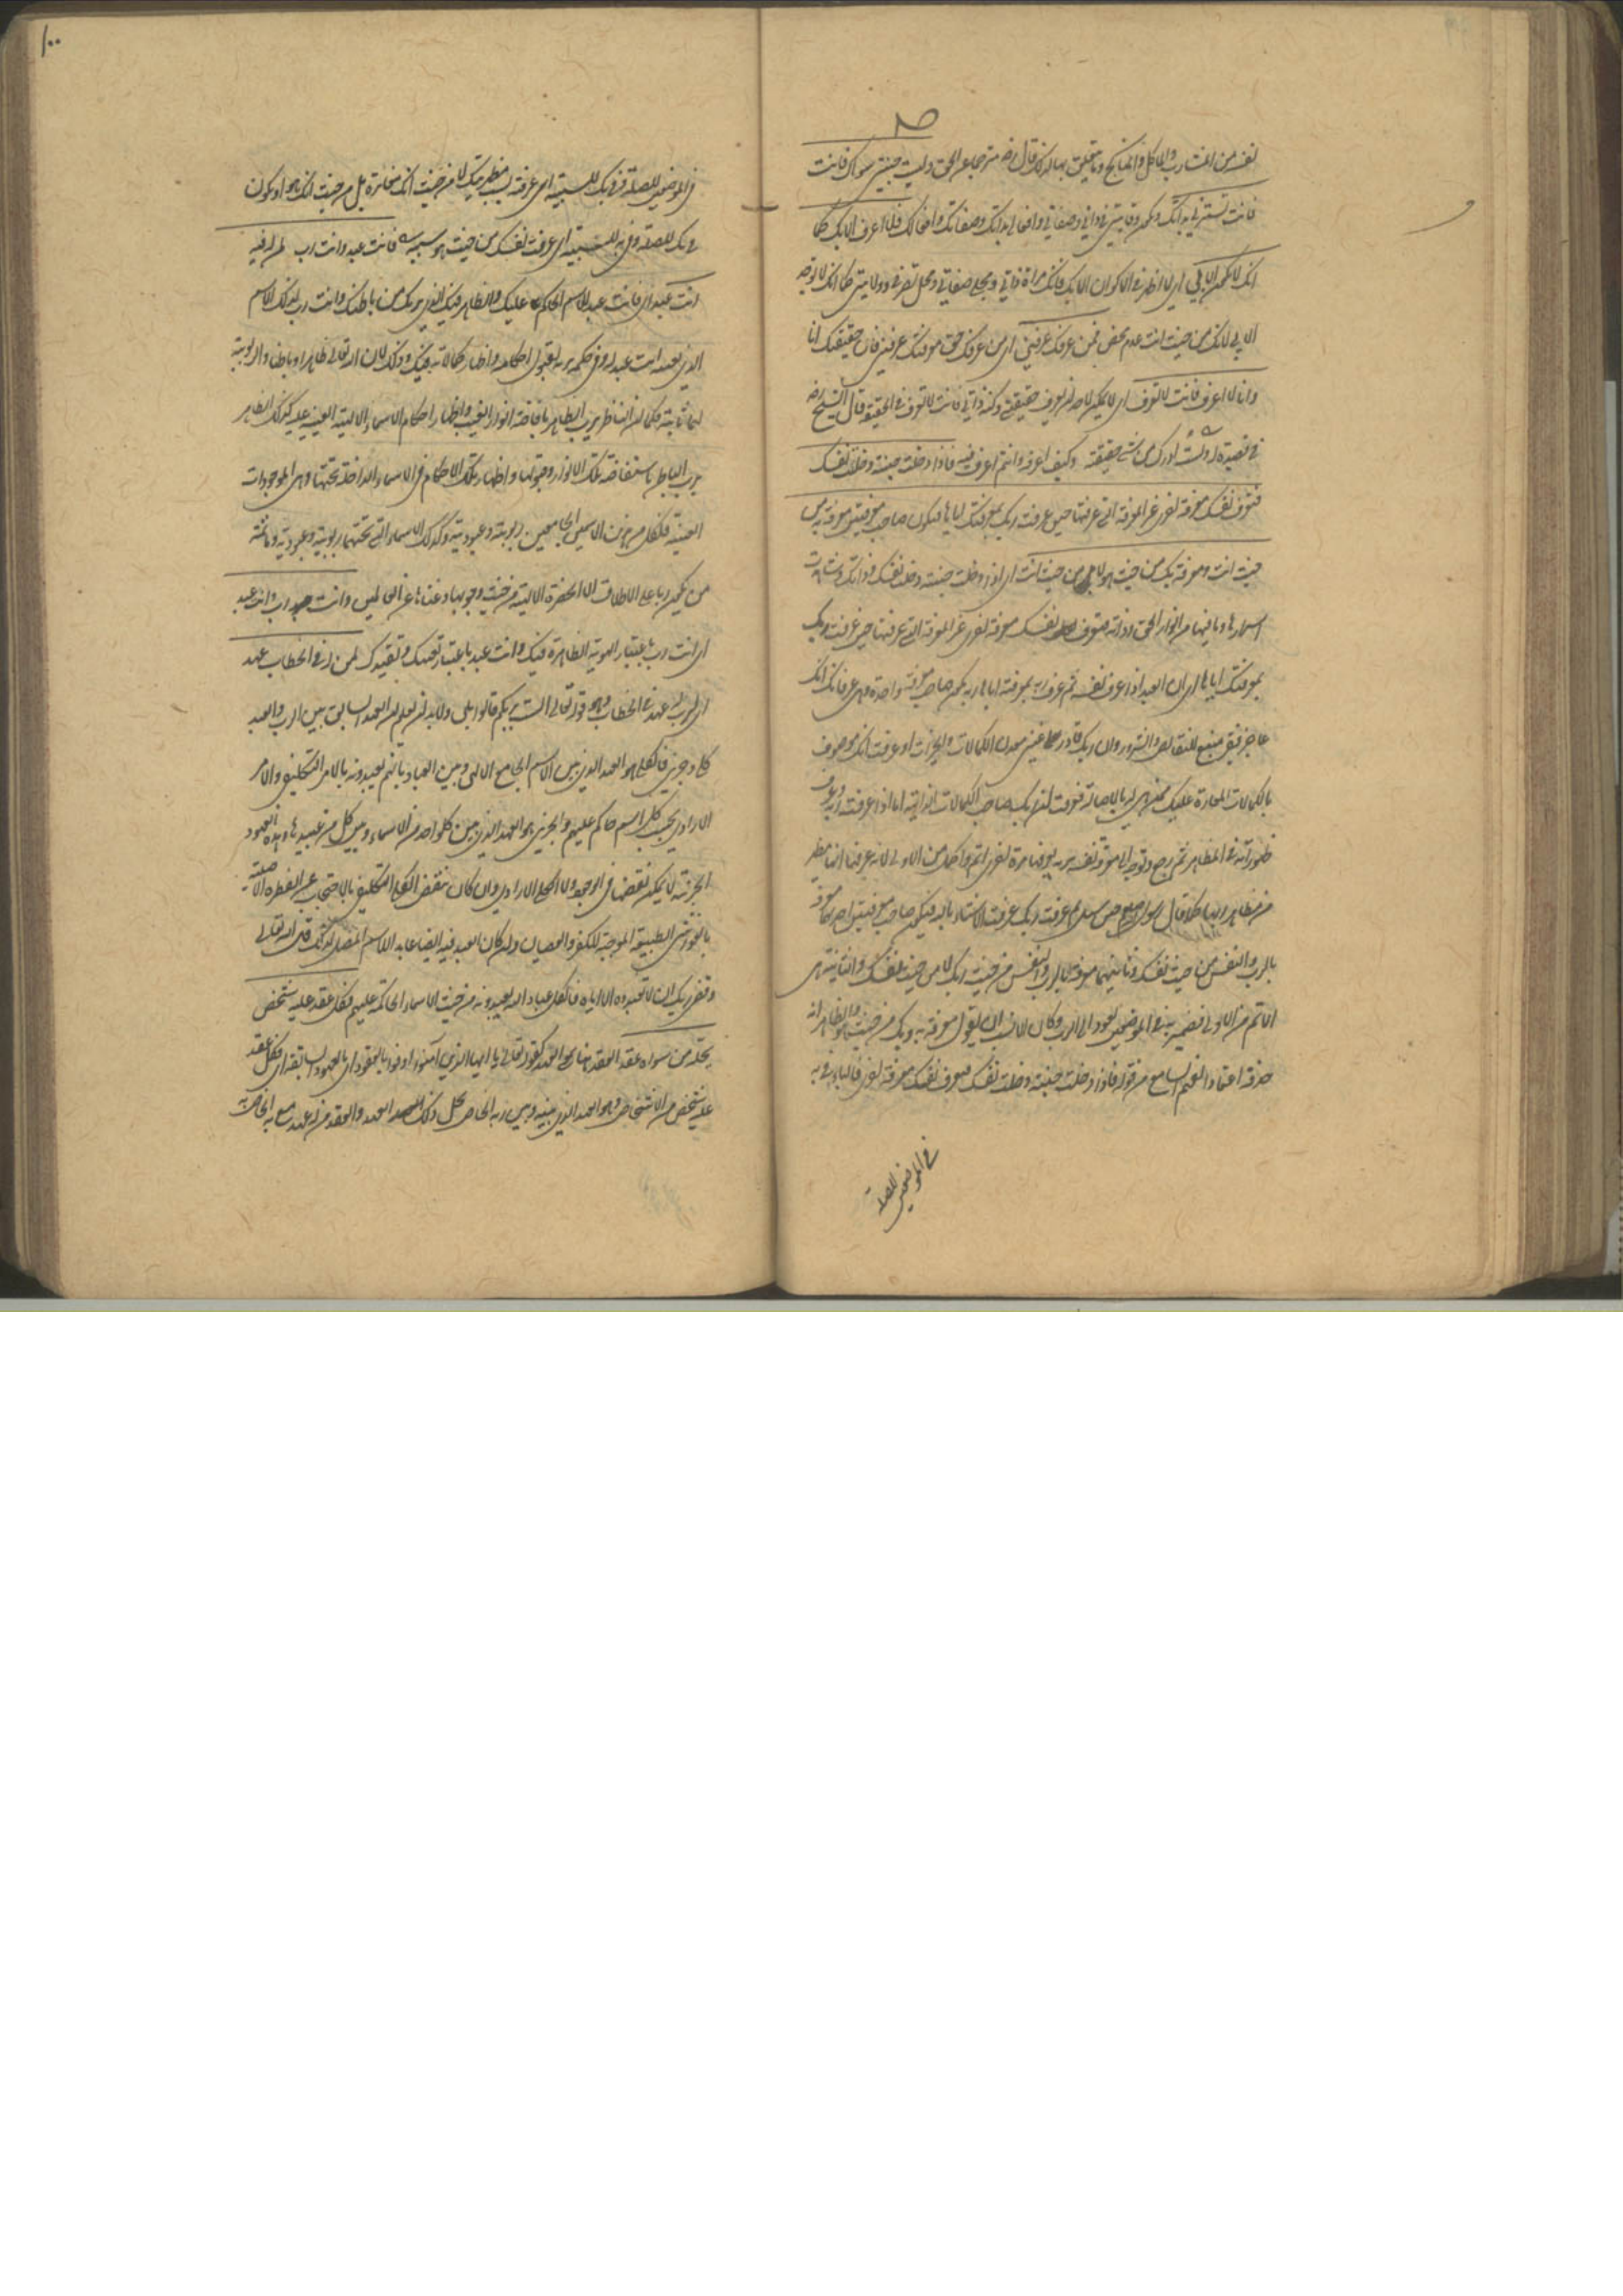 النفس من المشارب والمآكل والمناكح وما يتعلق بها لذلك قال رضه مترجما عن الحق وليست جنتي سواك فانت
فانت تسترني بذاتك وكن وقايتي في ذاتي وصفاتي وافعالي بذاتك وصفاتك وافعالك فلا اعرف الا بك كما
انك لا تكون الا بي اي لا اظهر في الاكوان الا بك فانك مرآة ذاتي ومجلى صفاتي ومحل تصرفي وولايتي كما انك لا توجد
الا بي لانك من حيث انت عدم محض فمن عرفك عرفني اي من عرفك حق معرفتك عرفني فان حقيقتك انا
وانا لا اعرف فانت لا تعرف اي لا يمكن لاحد ان يعرف حقيقتي وكنه ذاتي فانت لا تعرف في الحقيقة قال الشيخ رضه
في قصيدة له ولست ادرك من شيء حقيقته وكيف ادركه وانتم فيه فاذا دخلت جنته دخلت نفسك
فتعرف نفسك معرفة اخرى غير المعرفة التي عرفتها حين عرفت ربك بمعرفتك اياها فتكون صاحب معرفتين معرفة به من
حيث انت ومعرفة بك من حيث هو لا من حيث انت اي اذا دخلت جنته دخلت نفسك وذاتك وشاهدت
اسرارها وما فيها من انوار الحق وذاته فتعرف نفسك معرفة اخرى غير المعرفة التي عرفتها حين عرفت ربك
بمعرفتك اياها اي ان العبد اذا عرف نفسه ثم عرف ربه بمعرفته اياها ربه يكون صاحب معرفة واحدة وهي عرفانك انك
عاجز فقير منبع للنقايص والشرور وان ربك قادر غني معدن الكمالات والخيرات او عرفت انك موصوف
بالكمالات المعارة عليك فهي له بالاصالة فعرفت ان ربك صاحب الكمالات الذاتية اما اذا عرفت ربه وعرف
ظهوراته في المظاهر ثم رجع وتوجه الى معرفة نفسه بربه يعرفها مرة اخرى اتم واكمل من الاولى لانه عرفها انها مظهر
من مظاهر ربها كما قال رسول صلعم حين سئل بم عرفت ربك عرفت الاشياء بالله فيكون صاحب معرفتين احديهما معرفة
بالرب والنفس من حيث نفسك وثانيتهما معرفة بالرب والنفس من حيث ربك لا من حيث نفسك والثانية هي
الاتم من الاولى فضمير به في الموضعين يعود الى الرب وكان الانسب ان يقول معرفة به وبك من حيث هو والظاهر انه
حذفه اعتمادا لفهم السامع من قوله فاذا دخلت جنته دخلت نفسك فتعرف نفسك معرفة اخرى فالباء في به
في الموضعين للصلة
١٠٠
في الموضعين للصلة وفي بك للسببية اي عرفته بسبب مظهريتك لا من حيث انك مغايرة بل من حيث انك هو او تكون
في بك للصلة وفي به للسببية اي عرفت نفسك من حيث هو بسببه فانت عبد وانت رب لمن له فيه
انت عبد اي فانت عبد للاسم الحاكم عليك والظاهر فيك الذي يربك من باطنك وانت رب لذلك الاسم
الذي بعينه انت عبد له وفي حكمه بربه لقبول احكامه واظهار كمالاته فيك وذلك لان الله تعالى ظاهرا وباطنا والربوبية
لهما ثابتة فكما ان الباطن يرب الظاهر بافاضة انوار الغيب واظهار احكام الاسماء الالهية الغيبية عليه كذلك الظاهر
يرب الباطن باستفاضة تلك الانوار وقبولها واظهار تلك الاحكام في الاسماء الداخلة تحتها وهي الموجودات
العينية فلكل من هذين الاسمين الجامعين ربوبية وعبودية وكذلك الاسماء التي تحتهما ربوبية وعبودية وما ثمة
من يكون ربا على الاطلاق الا الحضرة الالهية من حيث وجوبها وغناها عن العالمين وانت رب وانت عبد
اي انت رب باعتبار الهوية الظاهرة فيك وانت عبد باعتبار تعينك وتقيدك لمن له في الخطاب عهد
اي لرب له عهد في الخطاب وهو قوله تعالى الست بربكم قالوا بلى ولا بد ان تعلم ان العهد السابق بين الرب والعبد
كلي وجزئي فالكلي هو العهد الذي بين الاسم الجامع الالهي وبين العباد بانهم يعبدونه بالامر التكليفي والامر
الارادي بحسب كل اسم حاكم عليهم والجزئي هو العهد الذي بين كل واحد من الاسماء وبين كل من عبيدها وهذه العهود
الجزئية لا يمكن نقضها في الوجود ولا الكلي الارادي وان كان ينقض الكلي التكليفي بالاحتجاب عن الفطرة الاصلية
بالغواشي الطبيعية الموجبة للكفر والعصيان وان كان العبد فيه ايضا عابدا للاسم المضل لذلك قال الله تعالى
وقضى ربك الا تعبدوا الا اياه فالكل عباد الله يعبدونه من حيث الاسماء الحاكمة عليهم فكل عقد عليه شخص
يحله من سواه عقد العقد هنا هو العهد كقوله تعالى يا ايها الذين آمنوا اوفوا بالعقود اي بالعهود السابقة اي فكل عقد
عليه شخص من الاشخاص وهو العهد الذي بينه وبين ربه الخاص يحل ذلك العهد والعقد من له عهد مع ربه الخاص